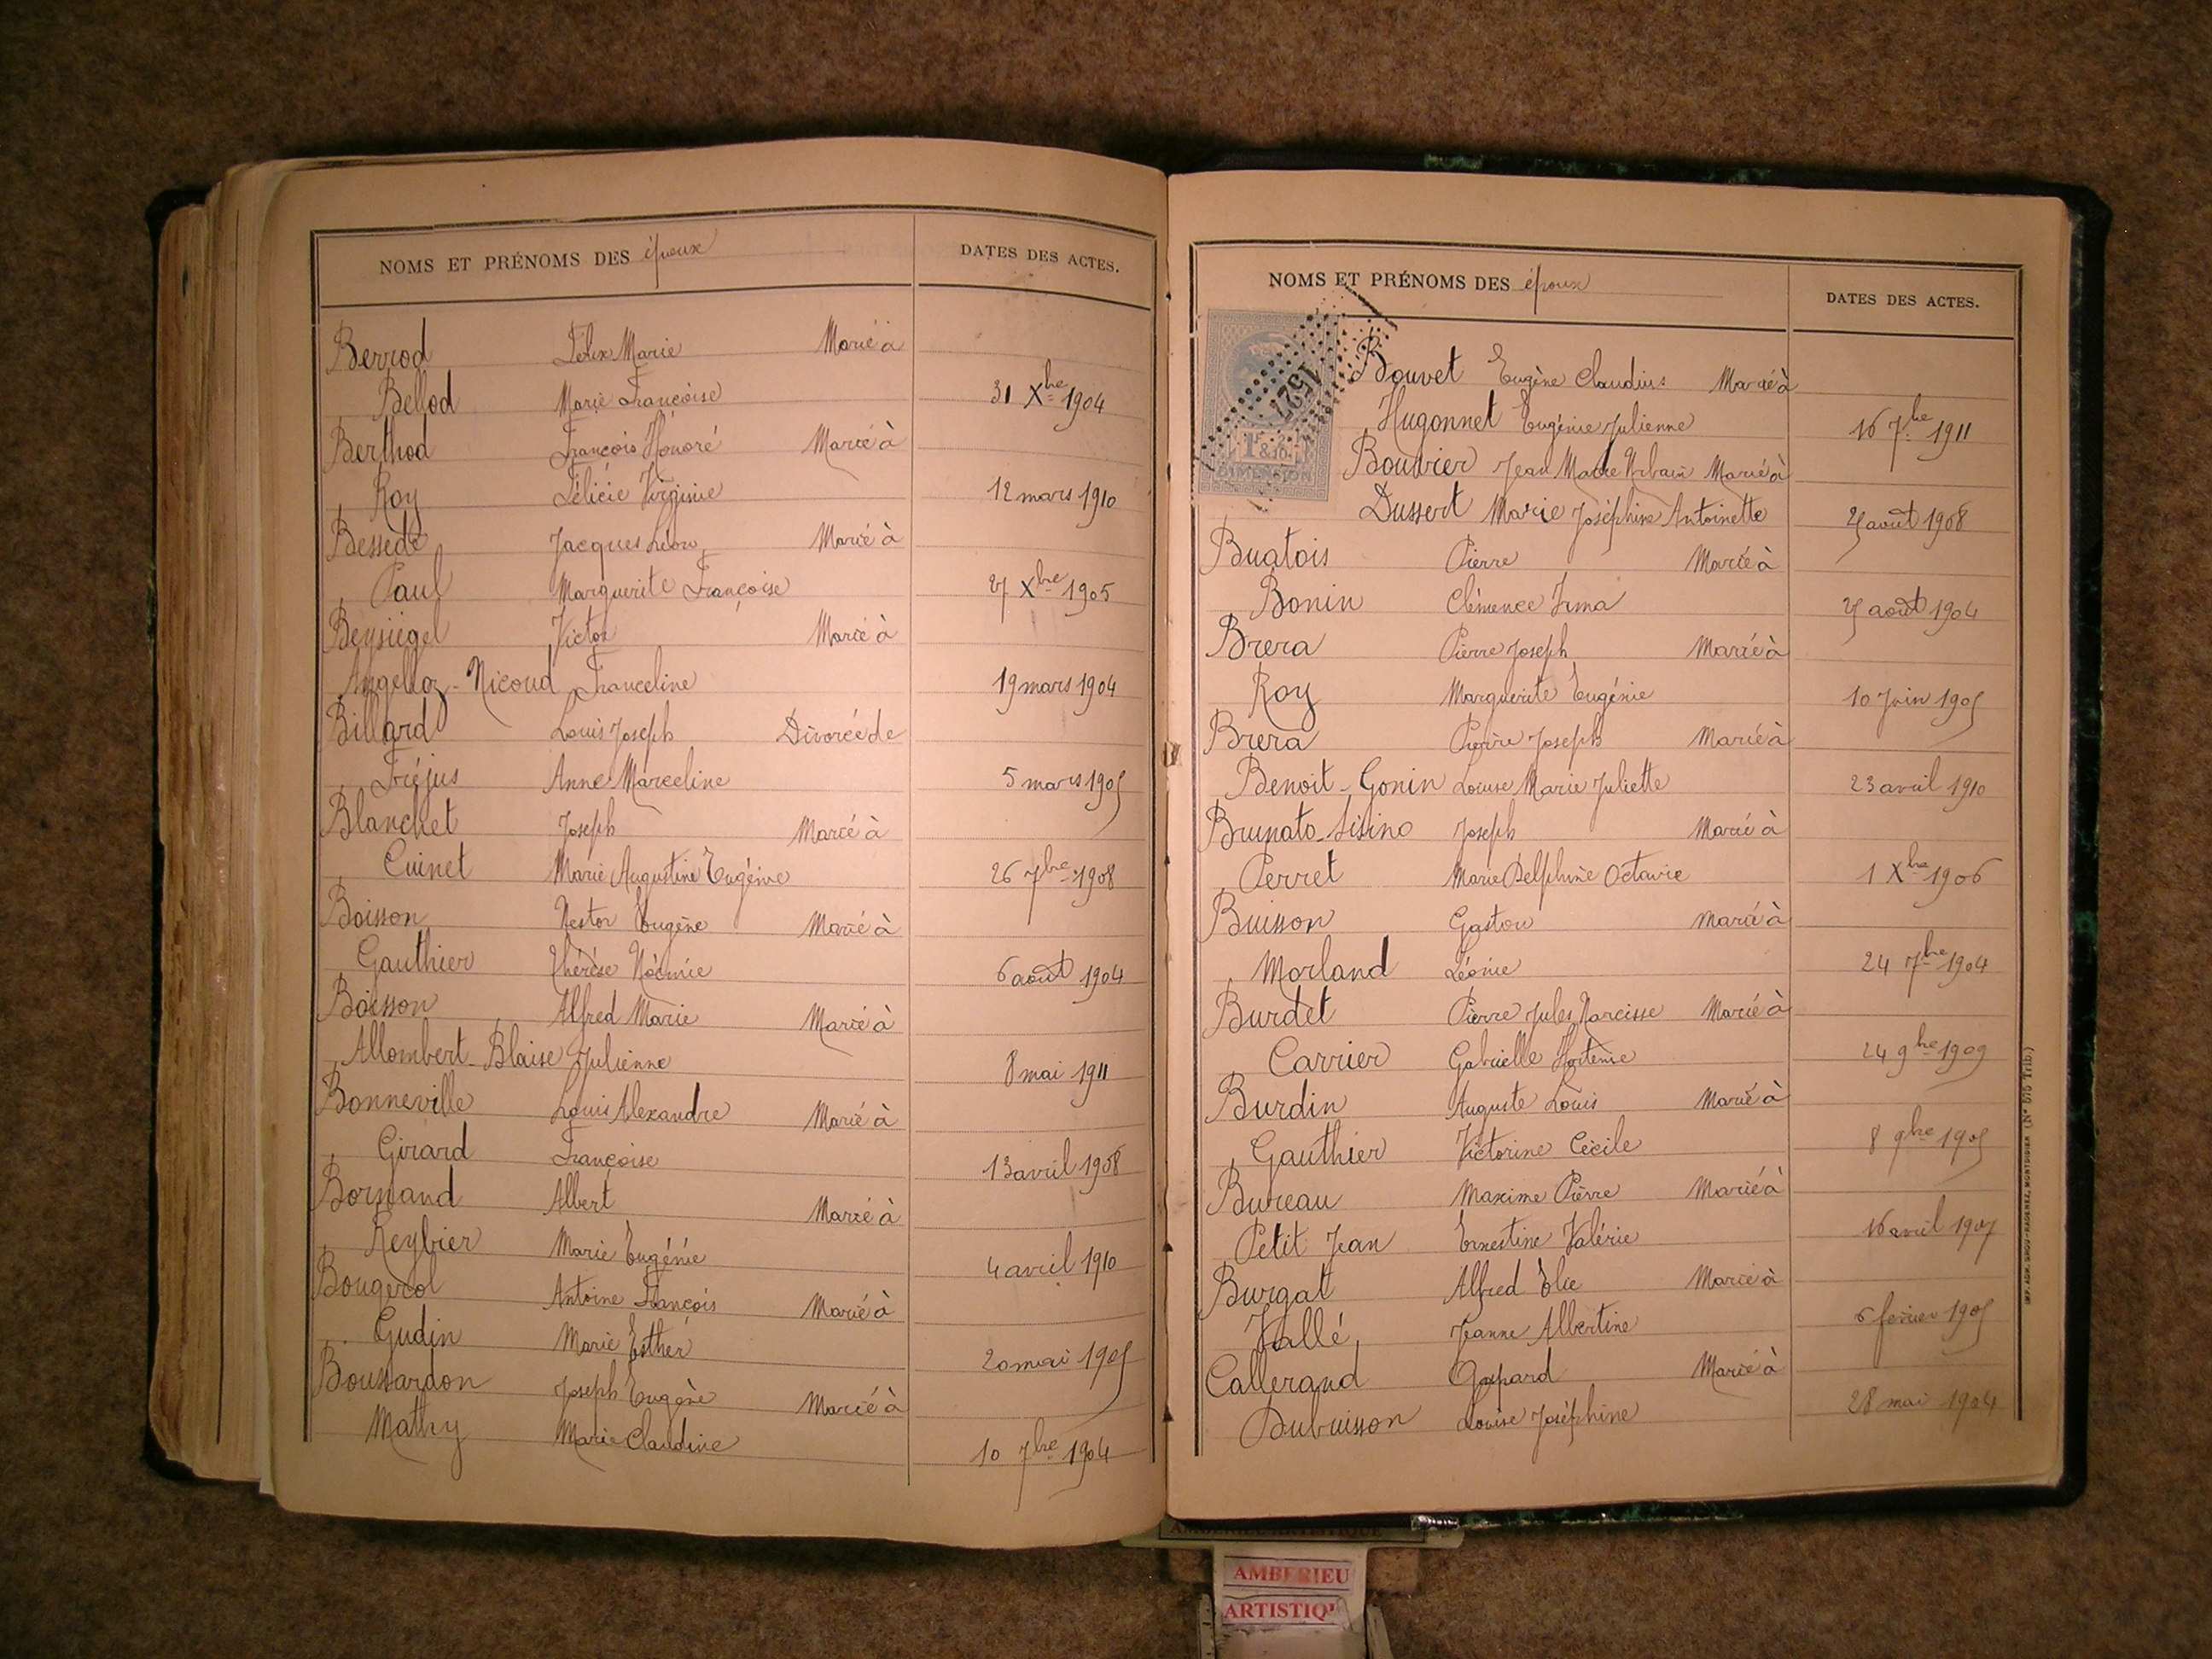 NOMS ET PRÉNOMS DES époux DATES DES ACTES.
Berrod Félix Marie Marié à
Bellod Marie Françoise 31 Xbre 1904
Berthod François Honoré Marié à
Roy Félicie Virginie 12 mars 1910
Bessede Jacques Léon Marié à
Paul Marguerite Françoise 27 Xbre 1905
Beysiegel Victor Marié à
Angelloz-Nicoud Franceline 19 mars 1904
Billard Louis Joseph Divorcé de
Fréjus Anne Marceline 5 mars 1905
Blanchet Joseph Marié à
Cuinet Marie Augustine Eugénie 26 7bre 1908
Boisson Nestor Eugène Marié à
Gauthier Thérèse Noémie 6 août 1904
Boisson Alfred Marie Marié à
Allombert-Blaise Julienne 8 mai 1911
Bonneville Louis Alexandre Marié à
Girard Françoise 13 avril 1908
Bornand Albert Marié à
Reybier Marie Eugénie 4 avril 1910
Bougerol Antoine François Marié à
Gudin Marie Esther 20 mai 1905
Boussardon Joseph Eugène Marié à
Mathy Marie Claudine 10 7bre 1904
NOMS ET PRÉNOMS DES époux DATES DES ACTES.
1527
DIMENSION
Bouvet Eugène Claudius Marié à
Hugonnet Eugénie Julienne 16 7bre 1911
Bouvier Jean Marie Urbain Marié à
Dussert Marie Joséphine Antoinette août 1908
Buatois Pierre Marié à
Bonin Clémence Irma août 1904
Brera Pierre Joseph Marié à
Roy Marguerite Eugénie 10 Juin 1905
Brera Pierre Joseph Marié à
Benoit-Gonin Louise Marie Juliette 23 avril 1910
Brunato-Sisino Joseph Marié à
Perret Marie Delphine Octavie 1 Xbre 1906
Buisson Gaston Marié à
Morland Léonie 24 7bre 1904
Burdet Pierre Jules Narcisse Marié à
Carrier Gabrielle Hortense 24 9bre 1909
Burdin Auguste Louis Marié à
Gauthier Victorine Cécile 8 9bre 1905
Bureau Maxime Pierre Marié à
Petit Jean Ernestine Valérie 16 avril 1907
Burgat Alfred Elie Marié à
Vallé Jeanne Albertine 6 février 1905
Callerand Gaspard Marié à
Dubuisson Louise Joséphine 28 mai 1904
AMBERIEU
ARTISTIQU